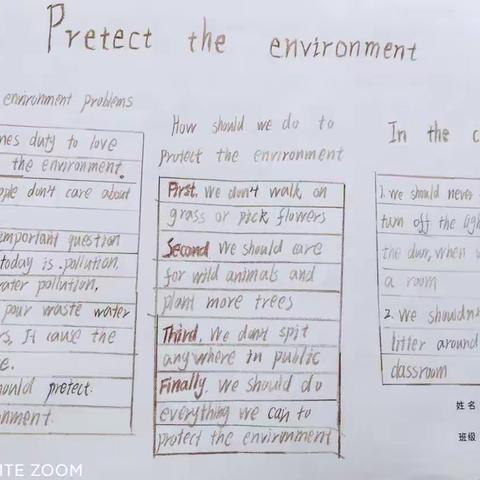 Pretect the environment
environment problems
nes duty to love
the environment.
ple don't care about
important question
today is pollution,
ater pollution.
pour waste water
rs, It cause the
e.
hould pretect
nment.
How should we do to
protect the environment
First, We don't walk on
grass or pick flowers
Second We should care
for wild animals and
plant more trees
Third, We don't spit
anywhere in public
Finally. We should do
everything we can to
protect the environment
In the c
1. We should never
turn off the ligh
the door, when
a room
2. We shouldn
litter around
classroom
姓名
班级
ITE ZOOM